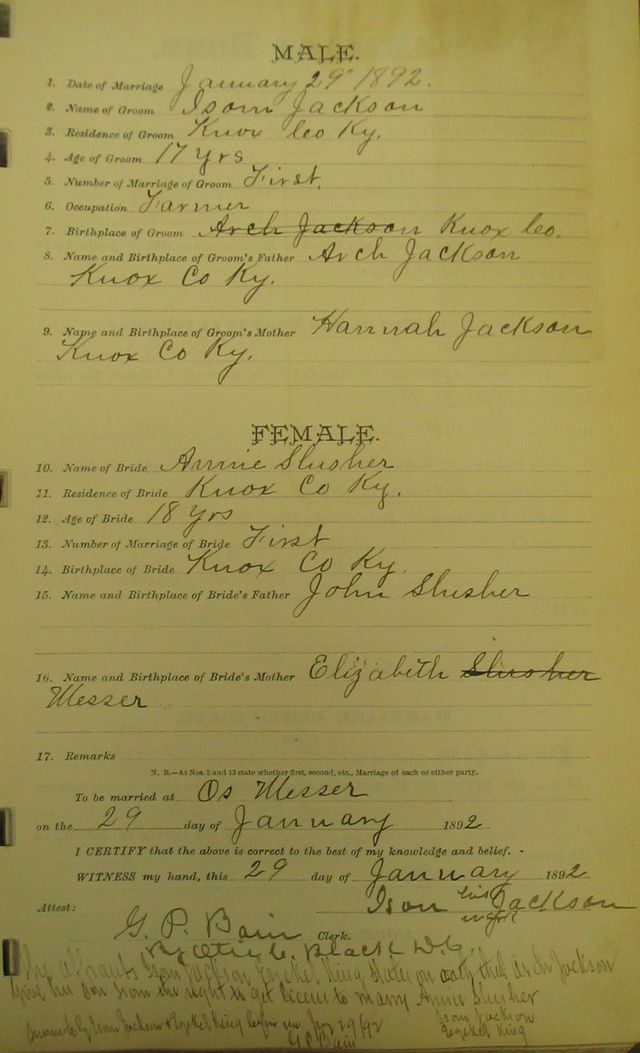 MALE.
1. Date of Marriage January 29" 1892.
2. Name of Groom Isom Jackson
3. Residence of Groom Knox Co Ky.
4. Age of Groom 17 yrs
5. Number of Marriage of Groom First.
6. Occupation Farmer
7. Birthplace of Groom Arch Jackson Knox Co.
8. Name and Birthplace of Groom's Father Arch Jackson
Knox Co Ky.
9. Name and Birthplace of Groom's Mother Hannah Jackson
Knox Co Ky.
FEMALE.
10. Name of Bride Annie Slusher
11. Residence of Bride Knox Co Ky.
12. Age of Bride 18 yrs
13. Number of Marriage of Bride First
14. Birthplace of Bride Knox Co Ky.
15. Name and Birthplace of Bride's Father John Slusher
16. Name and Birthplace of Bride's Mother Elizabeth Slusher
Messer
17. Remarks
N. B.—At Nos. 5 and 13 state whether first, second, etc., Marriage of each or either party.
To be married at Os Messer
on the 29 day of January 1892
I CERTIFY that the above is correct to the best of my knowledge and belief.
WITNESS my hand, this 29 day of January 1892
Ison his Jackson
mark
Attest:
G. P. Bain Clerk.
By C. Black D.C.
Ison Jackson King States on oath that Jackson
give his son the right to get to marry Annie Slusher
Isom Jackson
by Isom Jackson & King before me Jan 29/92
King
G P Bain